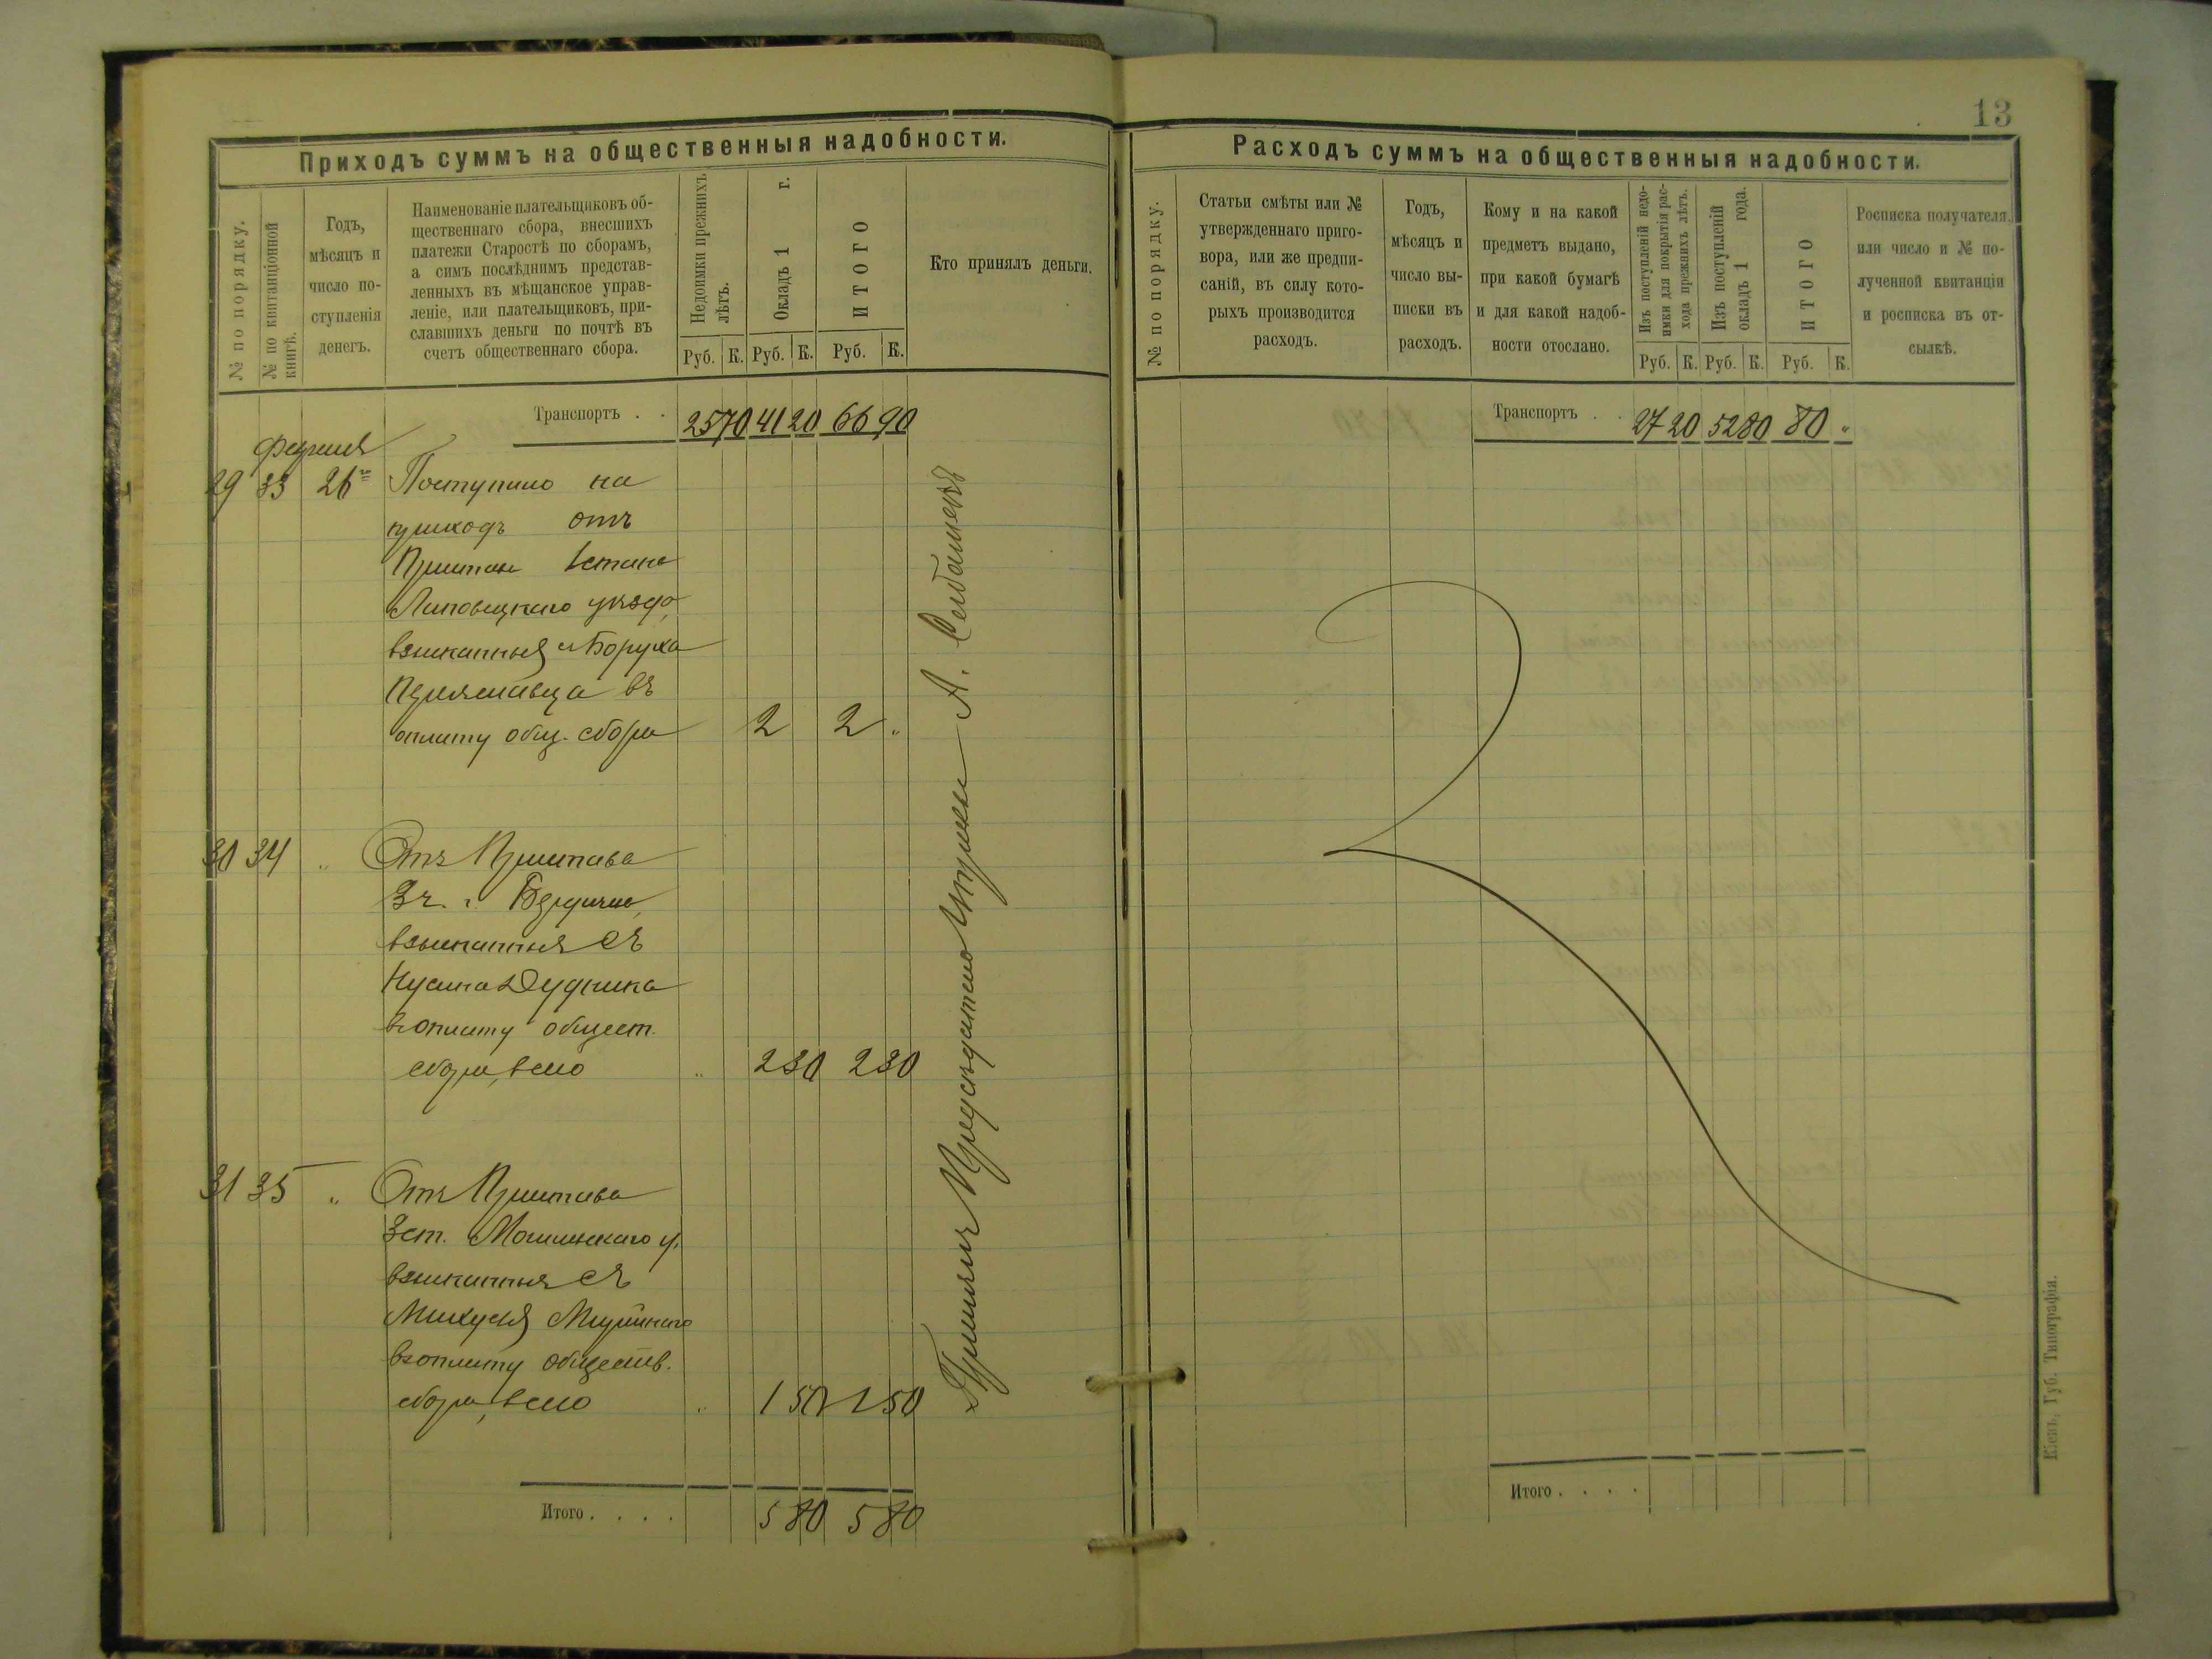 13
Приходъ суммъ на общественныя надобности.
№ по порядку.
№ по квитанціонной
книгѣ.
Годъ,
мѣсяцъ и
число по-
ступленія
денегъ.
Наименованіе плательщиковъ об-
щественнаго сбора, внесшихъ
платежи Старостѣ по сборамъ,
а симъ послѣднимъ представ-
ленныхъ въ мѣщанское управ-
леніе, или плательщиковъ, при-
славшихъ деньги по почтѣ въ
счетъ общественнаго сбора.
Недоимки прежнихъ
лѣтъ.
Окладъ 1 г.
ИТОГО
Руб. К. Руб. К. Руб. К.
Кто принялъ деньги.
Транспортъ . . 25 70 41 20 66 90
Февраля
29 33 26 Поступило на
приходъ отъ
Пристава 1 стана
Липовецкаго уѣзда,
взысканныя съ Боруха
въ
оплату общ. сбора 2 2 „
30 34 „ Отъ Пристава
3 ч. г. Бердичева,
взысканныя съ
Нусина Дудника
въ оплату общест.
сбора, всего „ 2 30 2 30
31 35 „ Отъ Пристава
3 ст. у.
взысканныя съ
въ оплату обществ.
сбора, всего „ 1 50 1 50
Итого . . . . 5 80 5 80
Принялъ Предсѣдатель Управы А.
Расходъ суммъ на общественныя надобности.
№ по порядку.
Статьи смѣты или №
утвержденнаго приго-
вора, или же предпи-
саній, въ силу кото-
рыхъ производится
расходъ.
Годъ,
мѣсяцъ и
число вы-
писки въ
расходъ.
Кому и на какой
предметъ выдано,
при какой бумагѣ
и для какой надоб-
ности отослано.
Изъ поступленій недо-
имки для покрытія рас-
хода прежнихъ лѣтъ.
Изъ поступленій
окладъ 1 года.
ИТОГО
Руб. К. Руб. К. Руб. К.
Росписка получателя,
или число и № по-
лученной квитанціи
и росписка въ от-
сылкѣ.
Транспортъ . . 27 20 52 80 80 „
Итого . . . .
Кіевъ, Губ. Типографія.